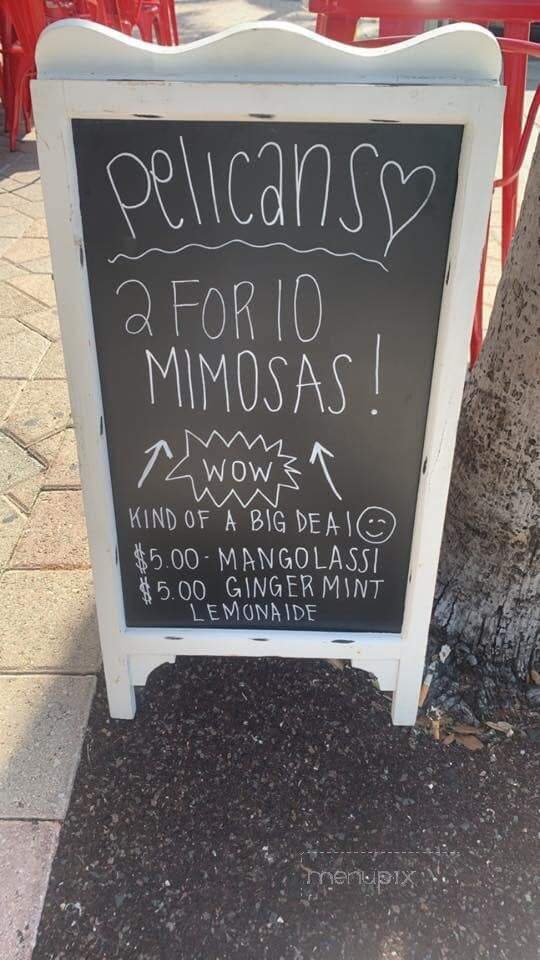 Pelicans
2 FOR 10
MIMOSAS!
WOW
KIND OF A BIG DEAl
$5.00 - MANGO LASSI
$5.00 GINGER MINT
LEMONAIDE
menupix